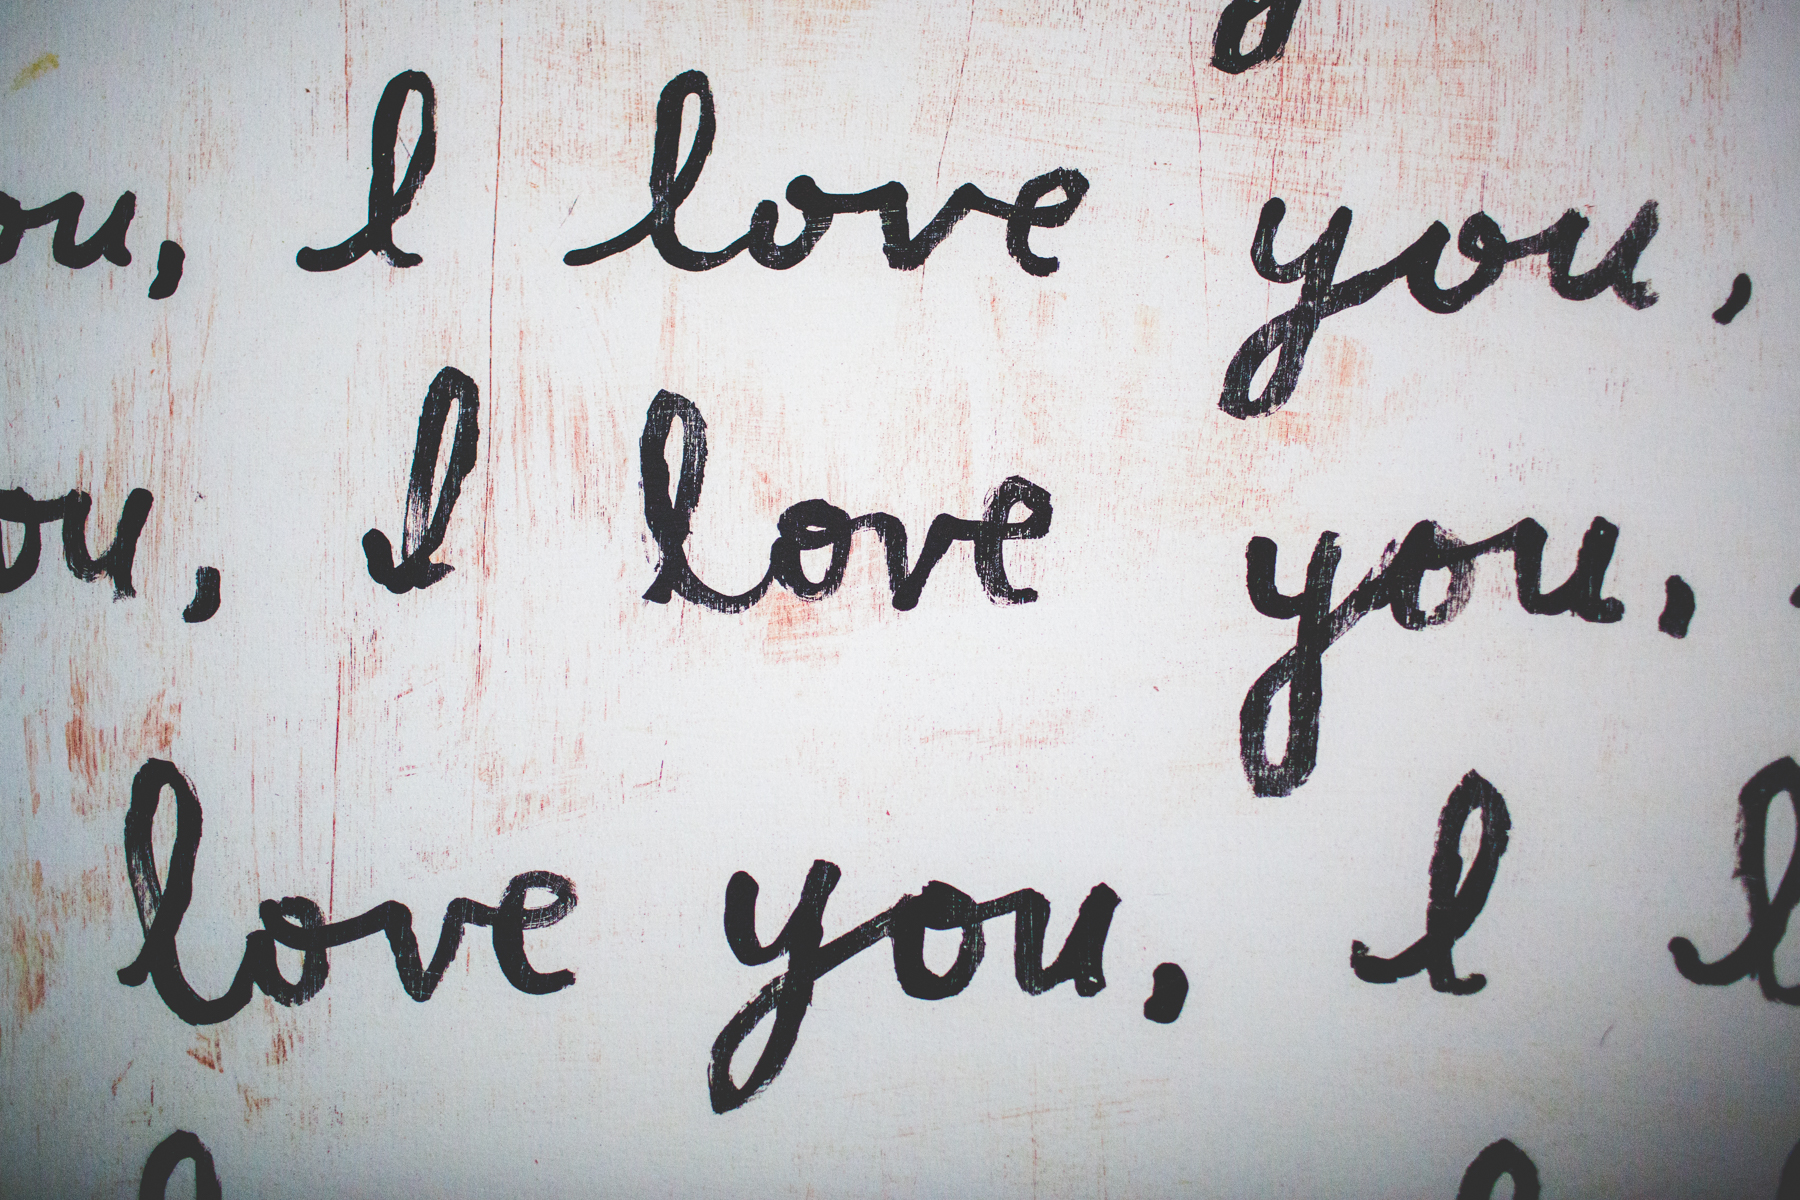 ou, I love you,
ou, I love you,
love you, I l